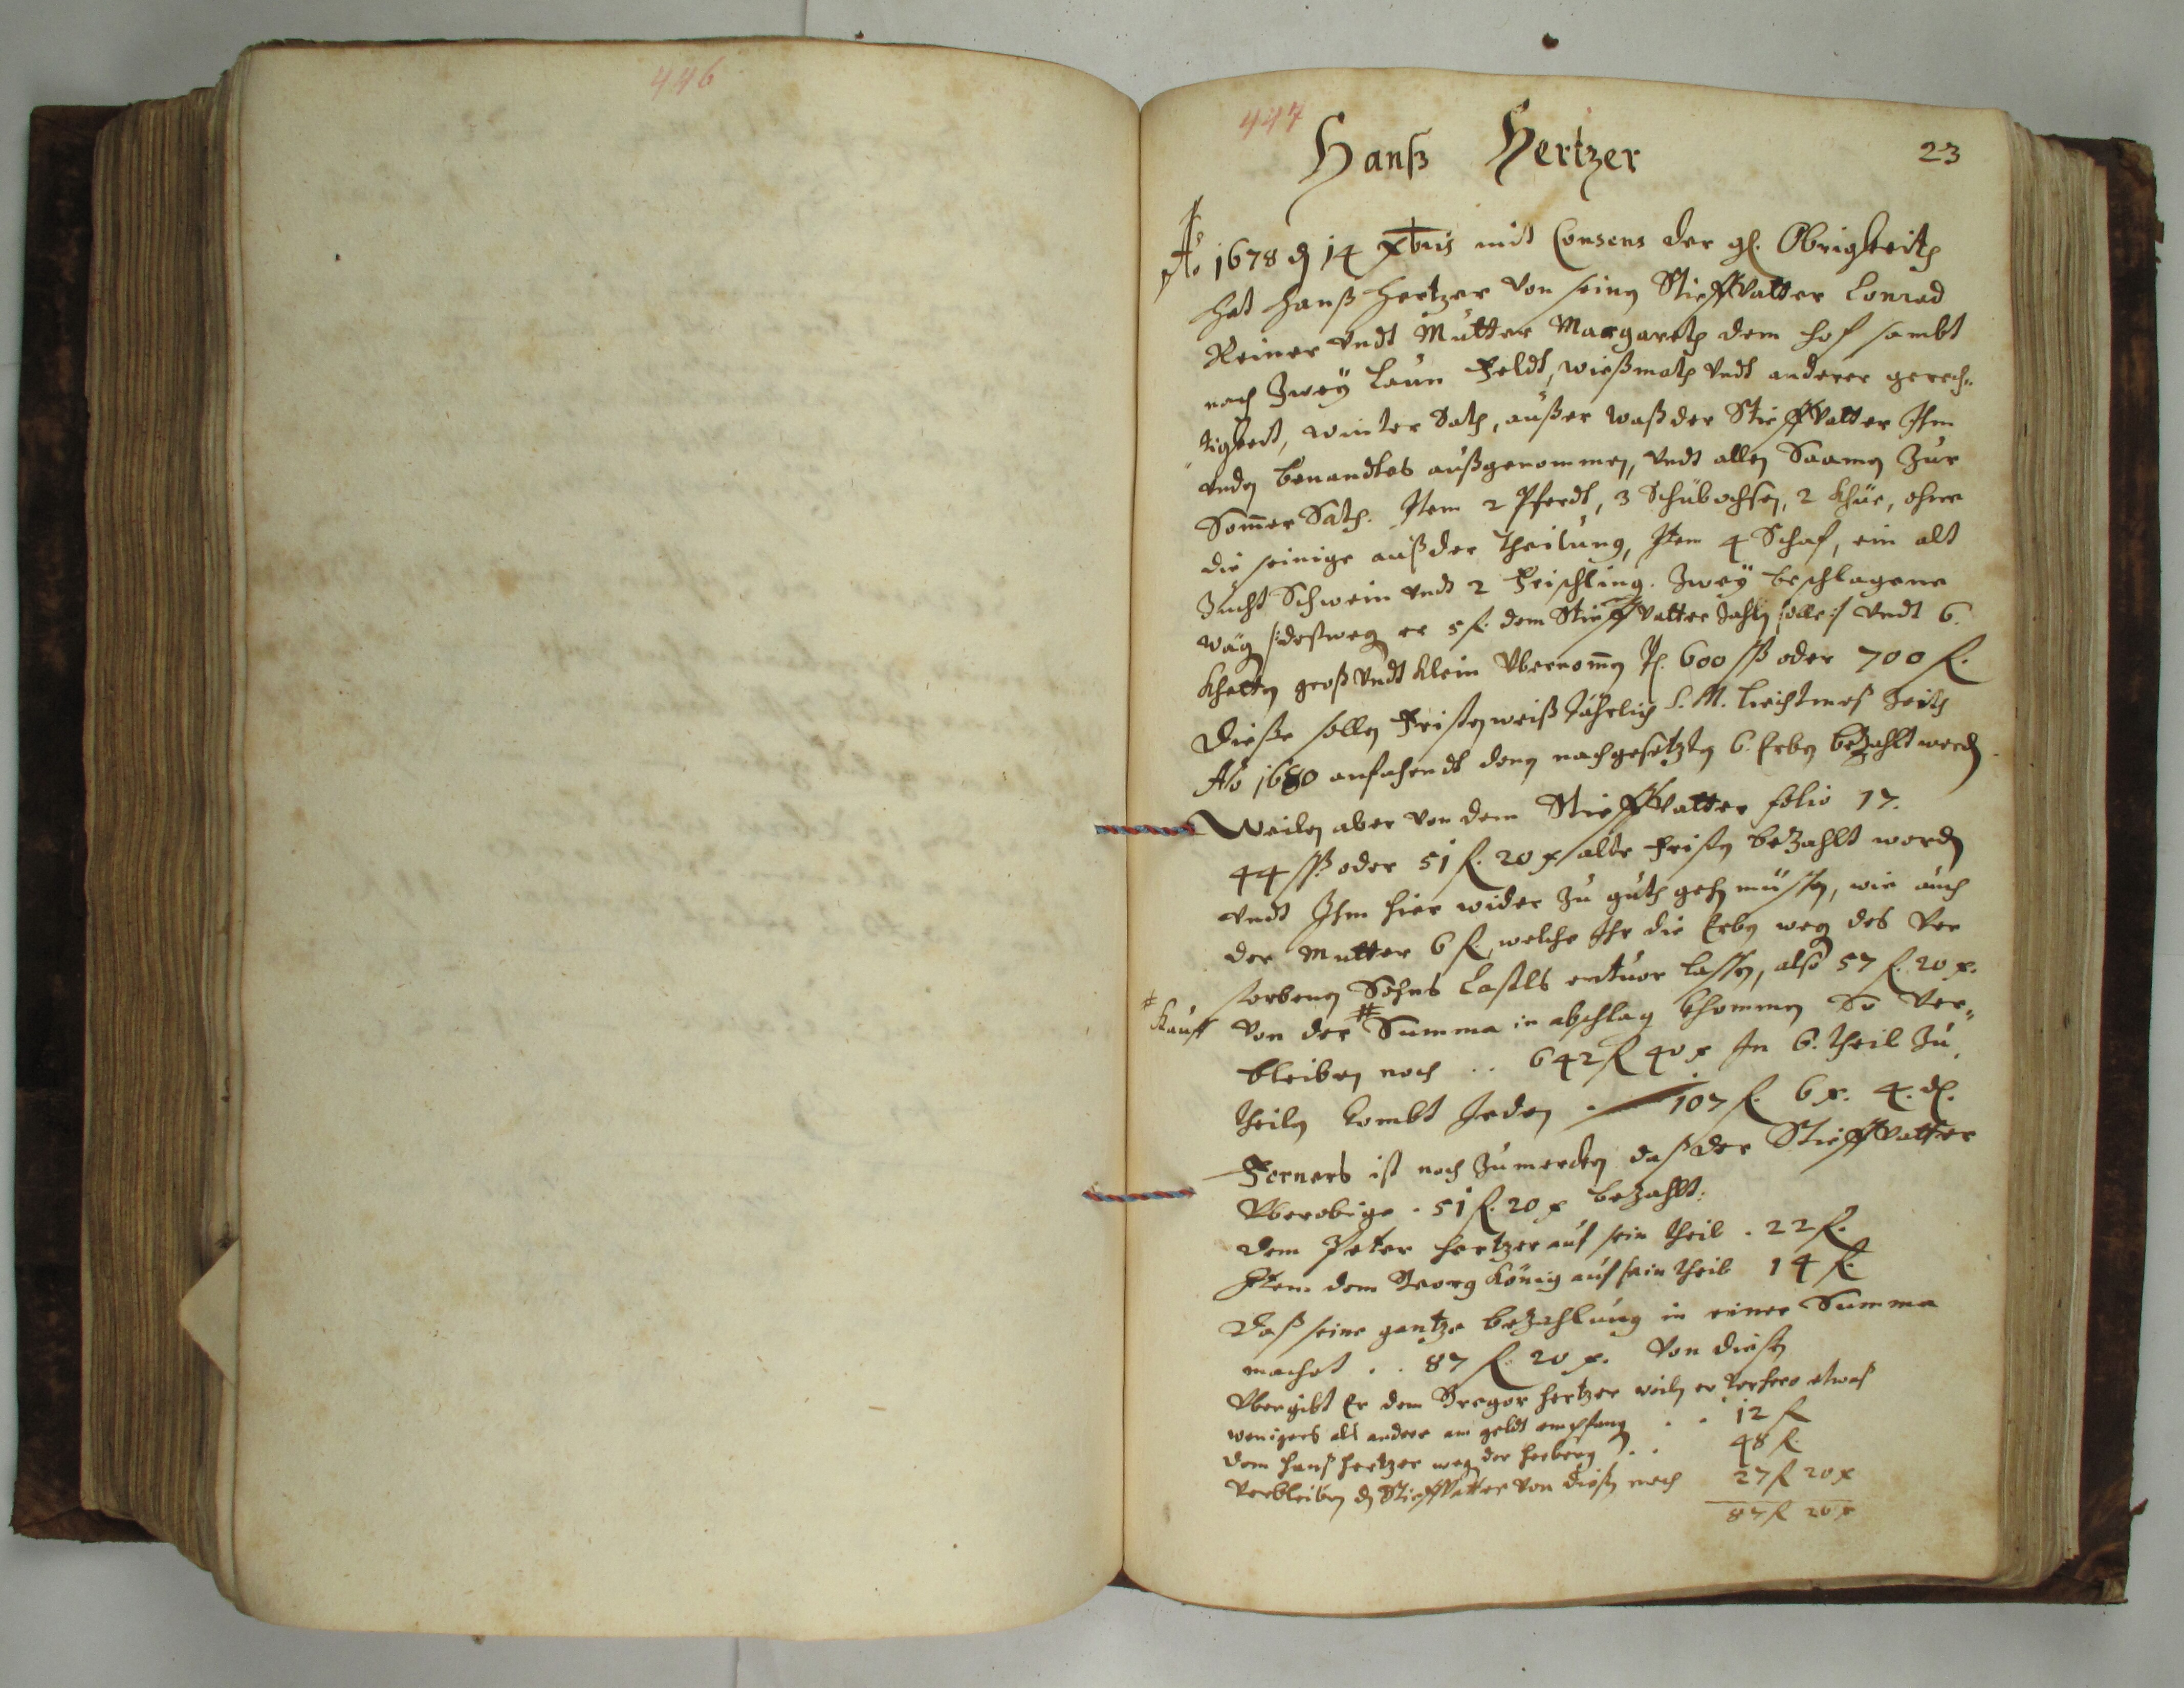 446
447
Hanß Hertzer
23
Aõ 1678 den 14 Xbris mit Consens der gl. Obrigkeith
hat Hanß Hertzer von seinen Stieffvatter Conrad
Reiner undt Mutter Margareth dem Hof sambt
nach Zweÿ Laun Feldt, wießmath undt anderer gerech„
tigkeit, winter Sath, außer waß der Stieffvatter Ihm
unden benandtes außgenommen, undt allen Saamen zur
Sommer Sath. Item 2 Pferdt, 3 Schubochsen, 2 Khüe, ohne
die seinige auß der Theilung, Item 4 Schaf, ein alt
Zucht Schwein undt 2 Frischling. Zweÿ beschlagene
wäg /:deßweg er 5 f. dem Stieffvatter Zahlen solle:/ undt 6.
Khetten groß undt klein Ubernommen P. 600 ßß oder 700 f.
Dieße sollen Fristenweiß Jährlich L. M. Liechtmeß Zeith
Aõ 1680 anfahendt denen nachgesetzten 6. Erben beZahlt werden
Weilen aber von dem Stieffvatter folio 17.
44 ßß oder 51 f. 20 x alte Fristen beZahlt worden
undt Ihm hier wider Zu guth gehen müssen, wie auch
der Mutter 6 f. welche Ihr die Erben weg des Ver
storbenen Sohns Castls erdtuor lassen, also 57 f. 20 x.
# Kauff
von der # Summa in abschlag khommen So Ver„
bleiben noch .. 642 f 40 x In 6. theil Zu
theilen kombt Jeden . 107 f. 6 x. 4. d.
Ferners ist noch Zumercken daß der Stieffvatter
Uberobige . 51 f. 20 x beZahlt:
dem Peter Hertzer auf sein theil . 22 f.
Item dem Georg König auf sein theil 14 f.
Daß seine gantze beZahlung in einer Summa
machet . . 87 f. 20 x. Von dießen
Ubergibt Er dem Gregor Hertzer weilen er Vorhero etwaß
wenigers als andere am geldt empfang . . 12 f
dem Hanß Hertzer weg der Herberg . . 48 f.
Verbleiben den Stieffvatter von dießen noch 27 f 20 x
87 f 20 x